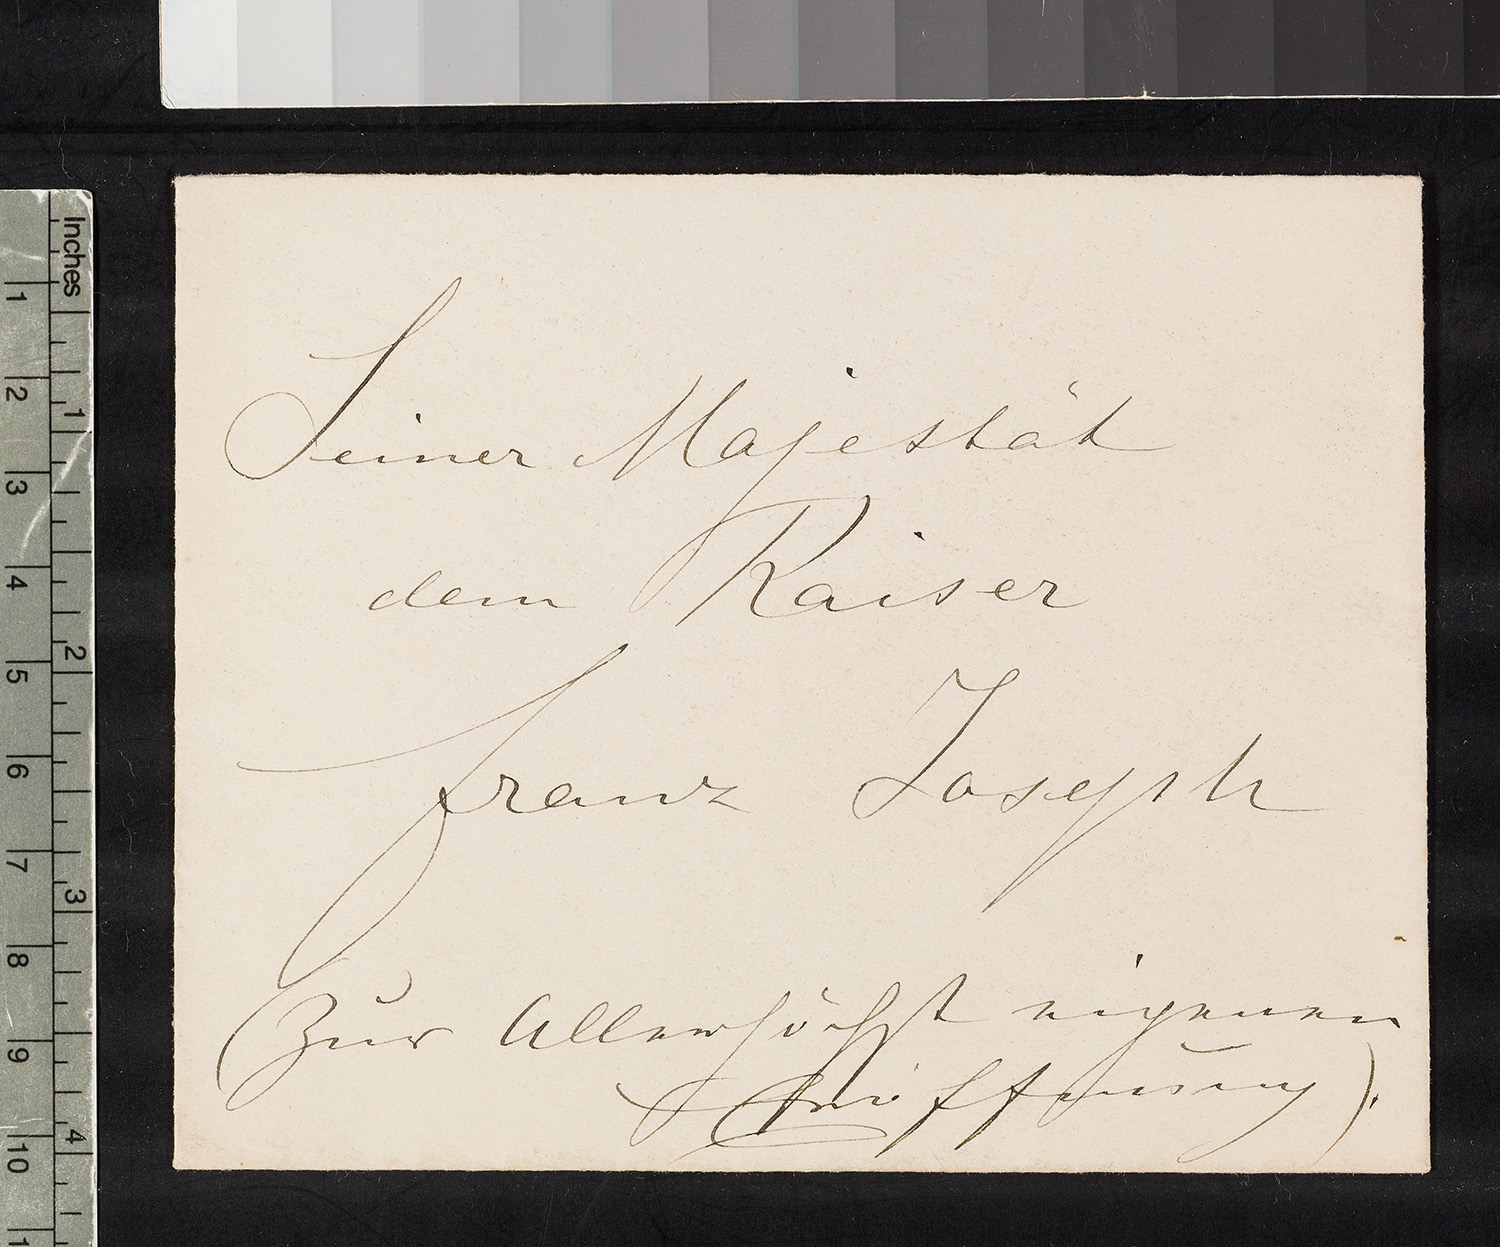 Seiner Majestät
dem Kaiser
Franz Joseph
(Zur Allerhöchst eigenen
Eröffnung).
Inches
1
2
3
4
1
2
3
4
5
6
7
8
9
10